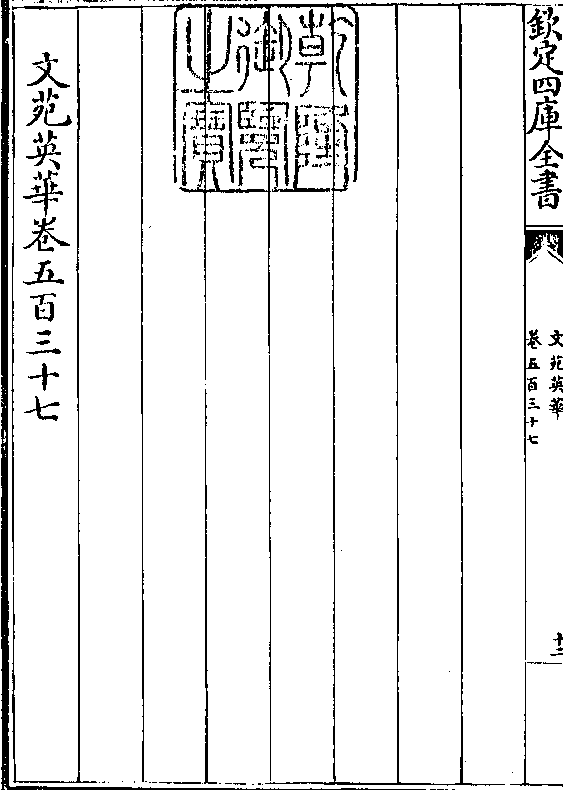 欽定四庫全書
文苑英華
卷五百三十七
十二
乾隆御覽之寶
文苑英華卷五百三十七